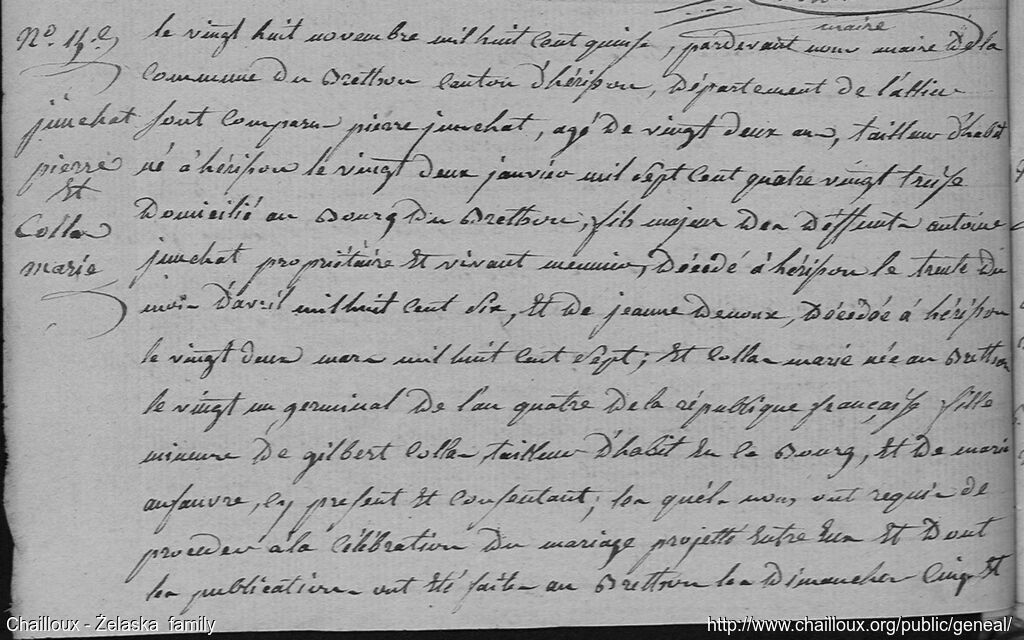 maire
N° 14e
junchat
pierre
Et
Collas
marie
le vingt huit novembre mil huit cent quinse, pardevant nous maire De la
Commune Du Brethon Canton D'hérisson, Département De l'allier
sont comparus pierre junchat, agé De vingt deux ans, tailleur D'habit
né à hérisson le vingt deux janvier mil sept cent quatre vingt treise
Domicilié au Bourg Du Brethon, fils majeur Des Deffunts antoine
junchat propriétaire Et vivant meunier, Décédé à hérisson le trente Du
mois D'avril mil huit cent six, Et De jeanne Denoux, Décédée à hérisson
le vingt Deux mars mil huit cent sept; Et Collas marie née au Brethon
le vingt un germinal De l'an quatre De la république française fille
mineure De gilbert Collas, tailleur D'habit En ce Bourg, Et De marie
aufauvre, Cy present Et Consentant; les quéls nous ont requis de
proceder à la Célébration Du mariage projetté Entre Eux Et Dont
les publications ont Eté faites au Brethon les Dimanches Cinq Et
Chailloux - Żelaska family
http://www.chailloux.org/public/geneal/